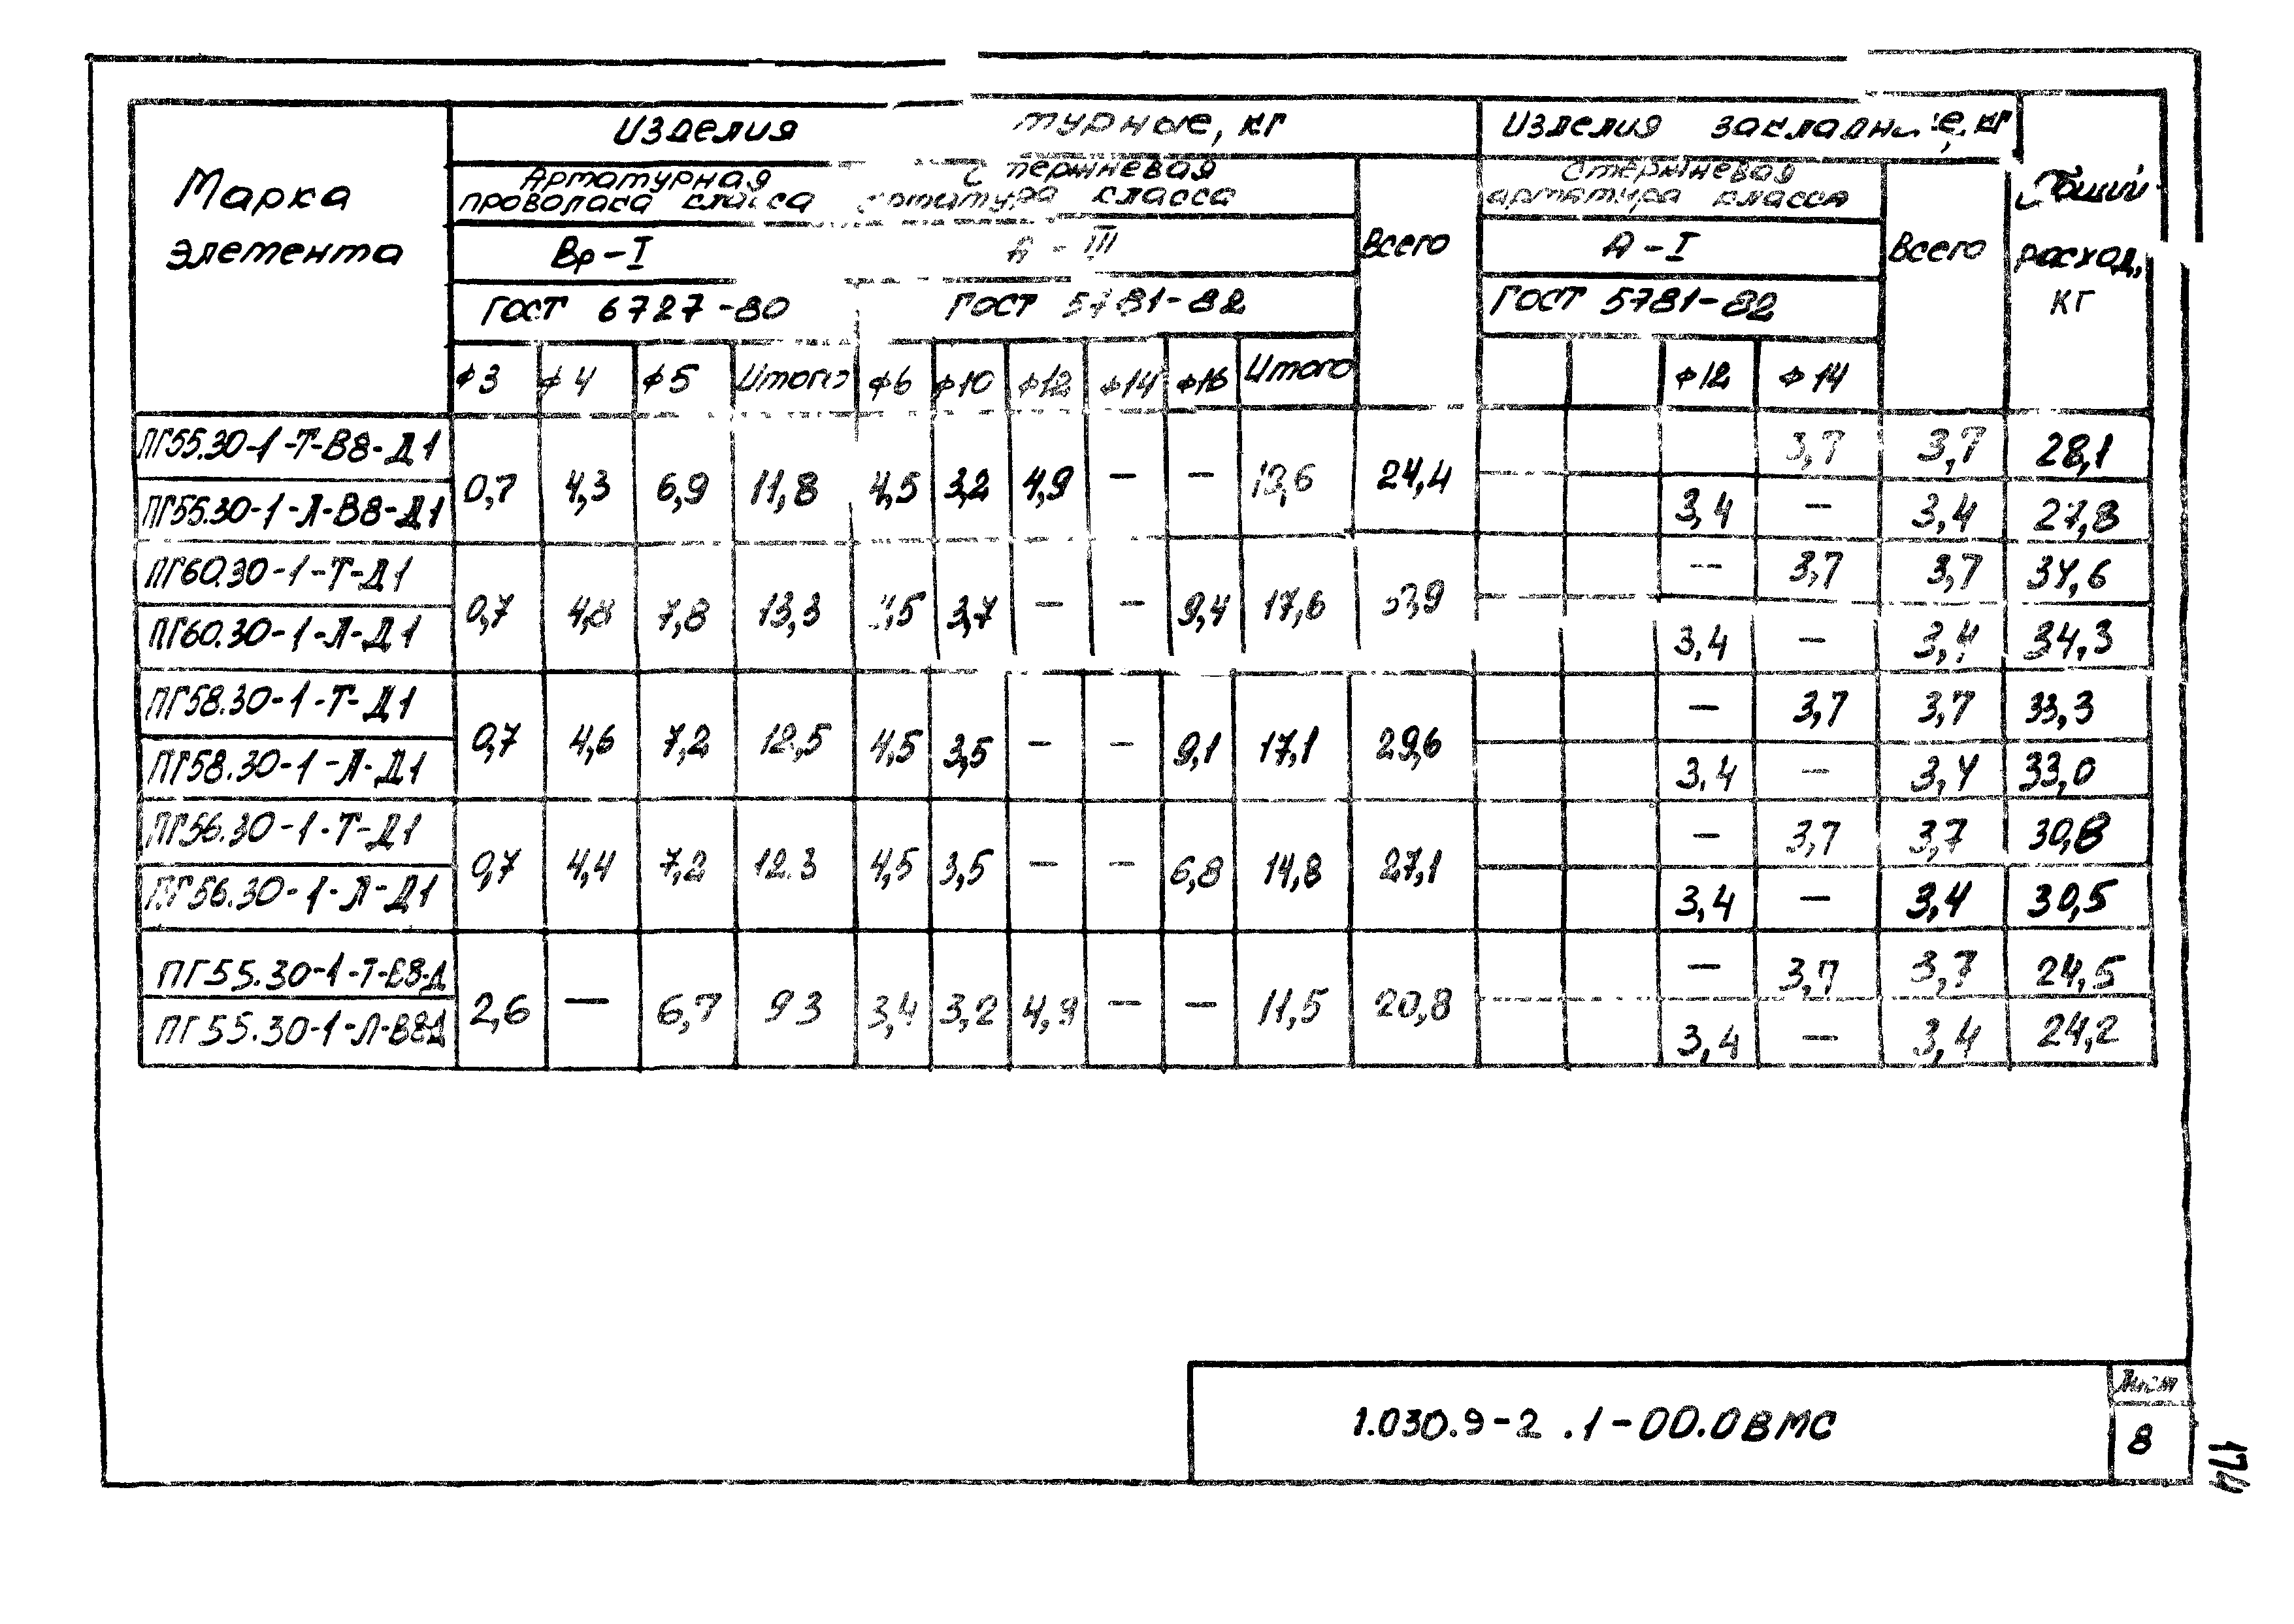 Марка элемента
Изделия турные, кг
Изделия закладные, кг
Общий расход, кг
Арматурная проволака класса
Стержневая арматура класса
Всего
Стержневая арматура класса
Всего
Вр-I
А-III
А-I
ГОСТ 6727-80
ГОСТ 5781-82
ГОСТ 5781-82
ф3 ф4 ф5 Итого ф6 ф10 ф12 ф14 ф16 Итого ф12 ф14
ПГ55.30-1-Т-В8-Д1 3,7 3,7 28,1
0,7 4,3 6,9 11,8 4,5 3,2 4,9 – – 24,4
ПГ55.30-1-Л-В8-Д1 3,4 – 3,4 27,8
ПГ60.30-1-Т-Д1 – 3,7 3,7 34,6
0,7 4,8 7,8 13,3 3,7 – – 9,4 17,6
ПГ60.30-1-Л-Д1 3,4 – 3,4 34,3
ПГ58.30-1-Т-Д1 – 3,7 3,7 33,3
0,7 4,6 7,2 12,5 4,5 3,5 – – 9,1 17,1 29,6
ПГ58.30-1-Л-Д1 3,4 – 3,4 33,0
ПГ56.30-1-Т-Д1 – 3,7 3,7 30,8
0,7 4,4 7,2 12.3 4,5 3,5 – – 6,8 14,8 27,1
ПГ56.30-1-Л-Д1 3,4 – 3,4 30,5
ПГ55.30-1-Т-В8-Д – 3,7 3,7 24,5
2,6 – 6,7 9 3 3,4 3,2 4,9 – – 11,5 20,8
ПГ55.30-1-Л-В8Д 3,4 – 3,4 24,2
1.030.9-2 .1-00.0ВМС
Лист
8
174